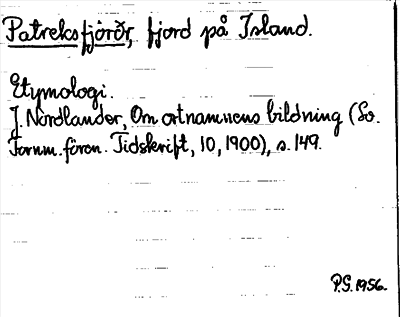 Patreksfjörðr, fjord på Island.
Etymologi.
J. Nordlander, Om ortnamnens bildning (Sv.
Fornm.fören. Tidskrift, 10, 1900), s. 149.
P.G. 1956.